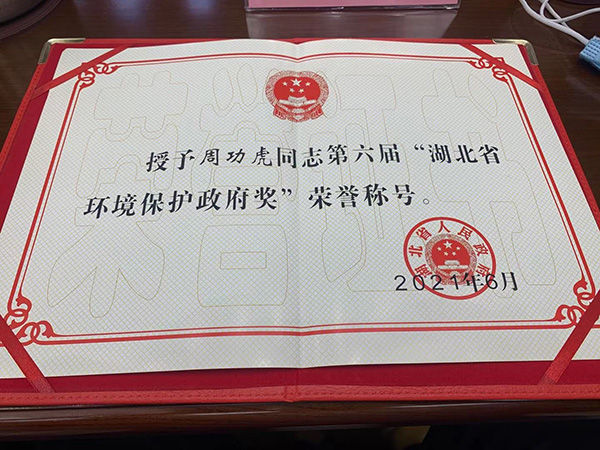 授予周功虎同志第六届“湖北省
环境保护政府奖”荣誉称号。
湖北省人民政府
2021年6月